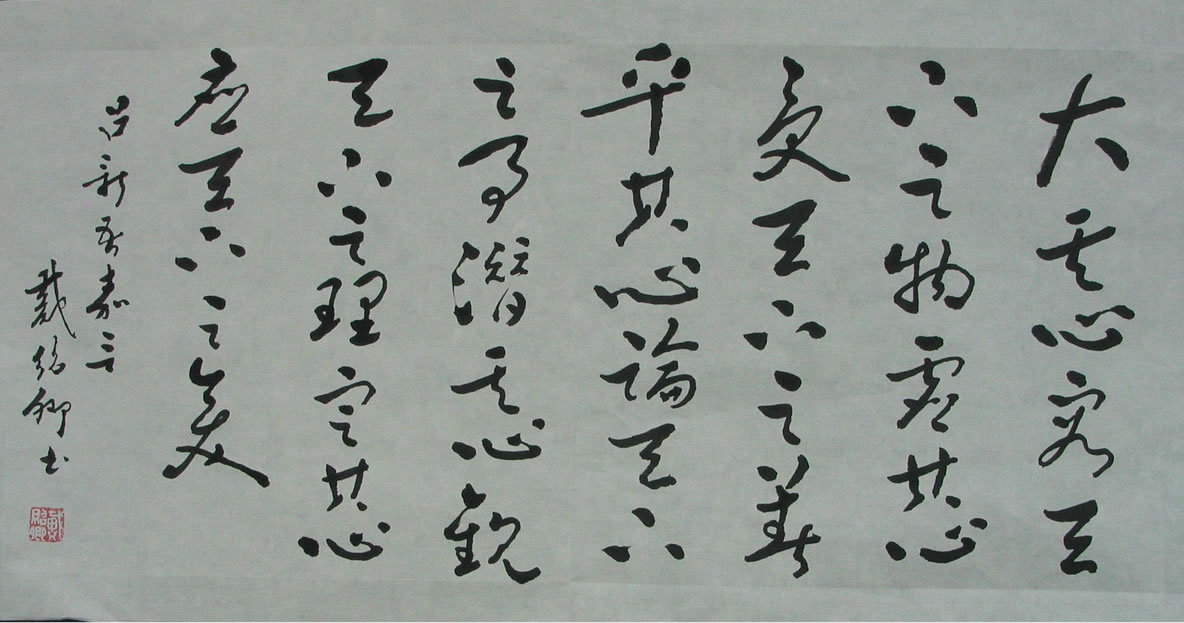 大其心容天
下之物虛其心
受天下之善
平其心論天下
之事潛其心觀
天下之理定其心
應天下之變
呂新吾嘉言
戴紹卿书